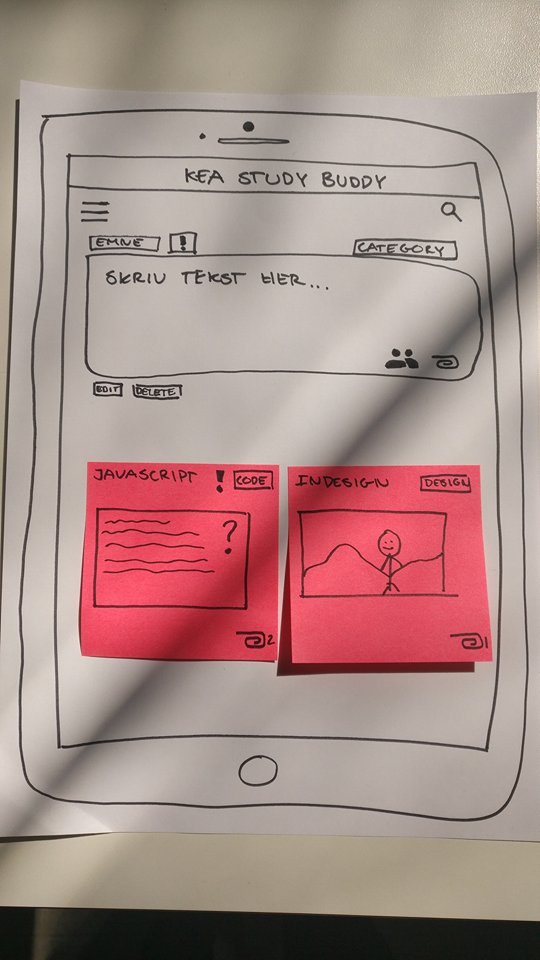 KEA STUDY BUDDY
EMNE ! CATEGORY
SKRIV TEKST HER...
EDIT DELETE
JAVASCRIPT ! CODE
?
2
INDESIGN DESIGN
1